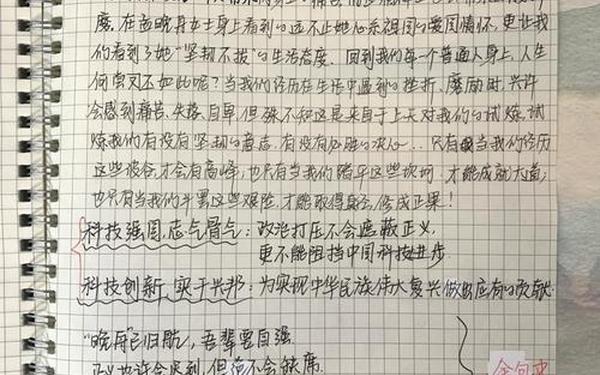 磨,在孟晚舟女士身上看到的远不止她心系祖国的爱国情怀,更让我
们看到了她"坚韧不拔"的生活态度。回到我们每个普通人身上,人生
何尝又不如此呢?当我们经历在生活中遇到的挫折、磨励时,兴许
会感到痛苦、失落、自卑,但殊不知这是来自于上天对我们的试炼,试
炼我们有没有坚韧的意志,有没有必胜的决心...只有当我们经历
这些波谷,才会有高峰,也只有当我们踏平这些坎坷,才能成就大道;
也只有当我们斗罢这些艰险,才能取得真经,修成正果!
科技强国,志气骨气:政治打压不会遮蔽正义,
更不能阻挡中国科技进步.
科技创新,实干兴邦:为实现中华民族伟大复兴做出应有的贡献.
"晚舟"已归航,吾辈要自强.
正义也许会迟到,但绝不会缺席.